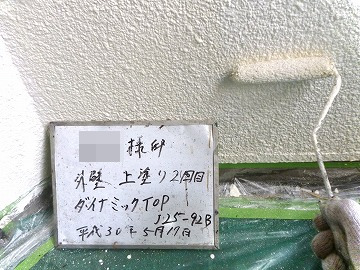 様邸
外壁 上塗り2回目
ダイナミックTOP
J25-92B
平成30年5月17日